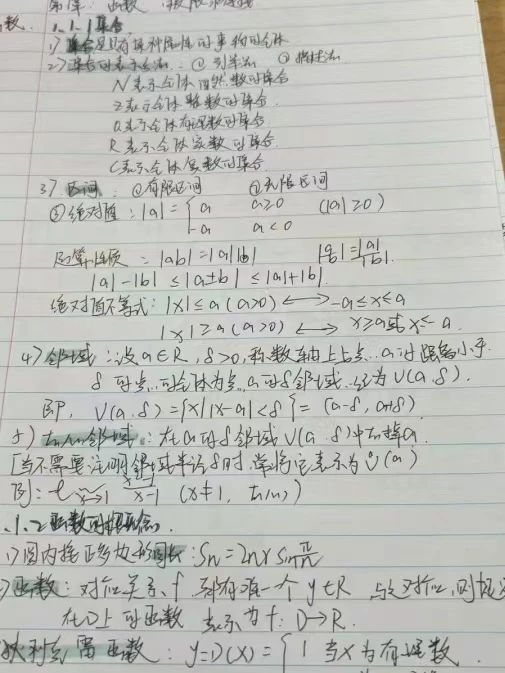 第1章: 函数 极限与连续
数. 1.1.1集合
1) 集合是具有某种属性的事物的全体
2) 集合的表示法: ① 列举法 ② 描述法
N表示全体自然数的集合
Z表示全体整数的集合.
Q表示全体有理数的集合.
R表示全体实数的集合.
C表示全体复数的集合.
3) 区间: ①有限区间 ②无限区间
③绝对值: |a| = { a a≥0 (|a|≥0)
-a a<0
运算性质: |ab|=|a||b| |a/b|=|a|/|b|.
|a|-|b| ≤|a±b| ≤|a|+|b|.
绝对值不等式: |x|≤a (a>0) ⟷ -a≤x≤a
|x|≥a (a>0) ⟷ x≥a或x≤-a.
4) 邻域: 设a∈R, δ>0, 称数轴上与点a的距离小于
δ的点的全体为点a的δ邻域, 记为U(a.δ).
即, U(a.δ)={x||x-a|<δ}=(a-δ, a+δ).
5) 去心邻域: 在a的δ邻域U(a.δ)中去掉a.
[当不需要注明邻域半径δ时, 常将它表示为Ů(a)
例: x→1 x-1 (x≠1, 去心)
.1.2函数的概念.
1) 圆内接正多边形周长: Sn=2nr sin π/n
函数: 对应关系f, 都有唯一个y∈R 与之对应, 则
在D上的函数 表示为f: D→R.
狄利克雷函数: y=D(x)={ 1 当x为有理数.